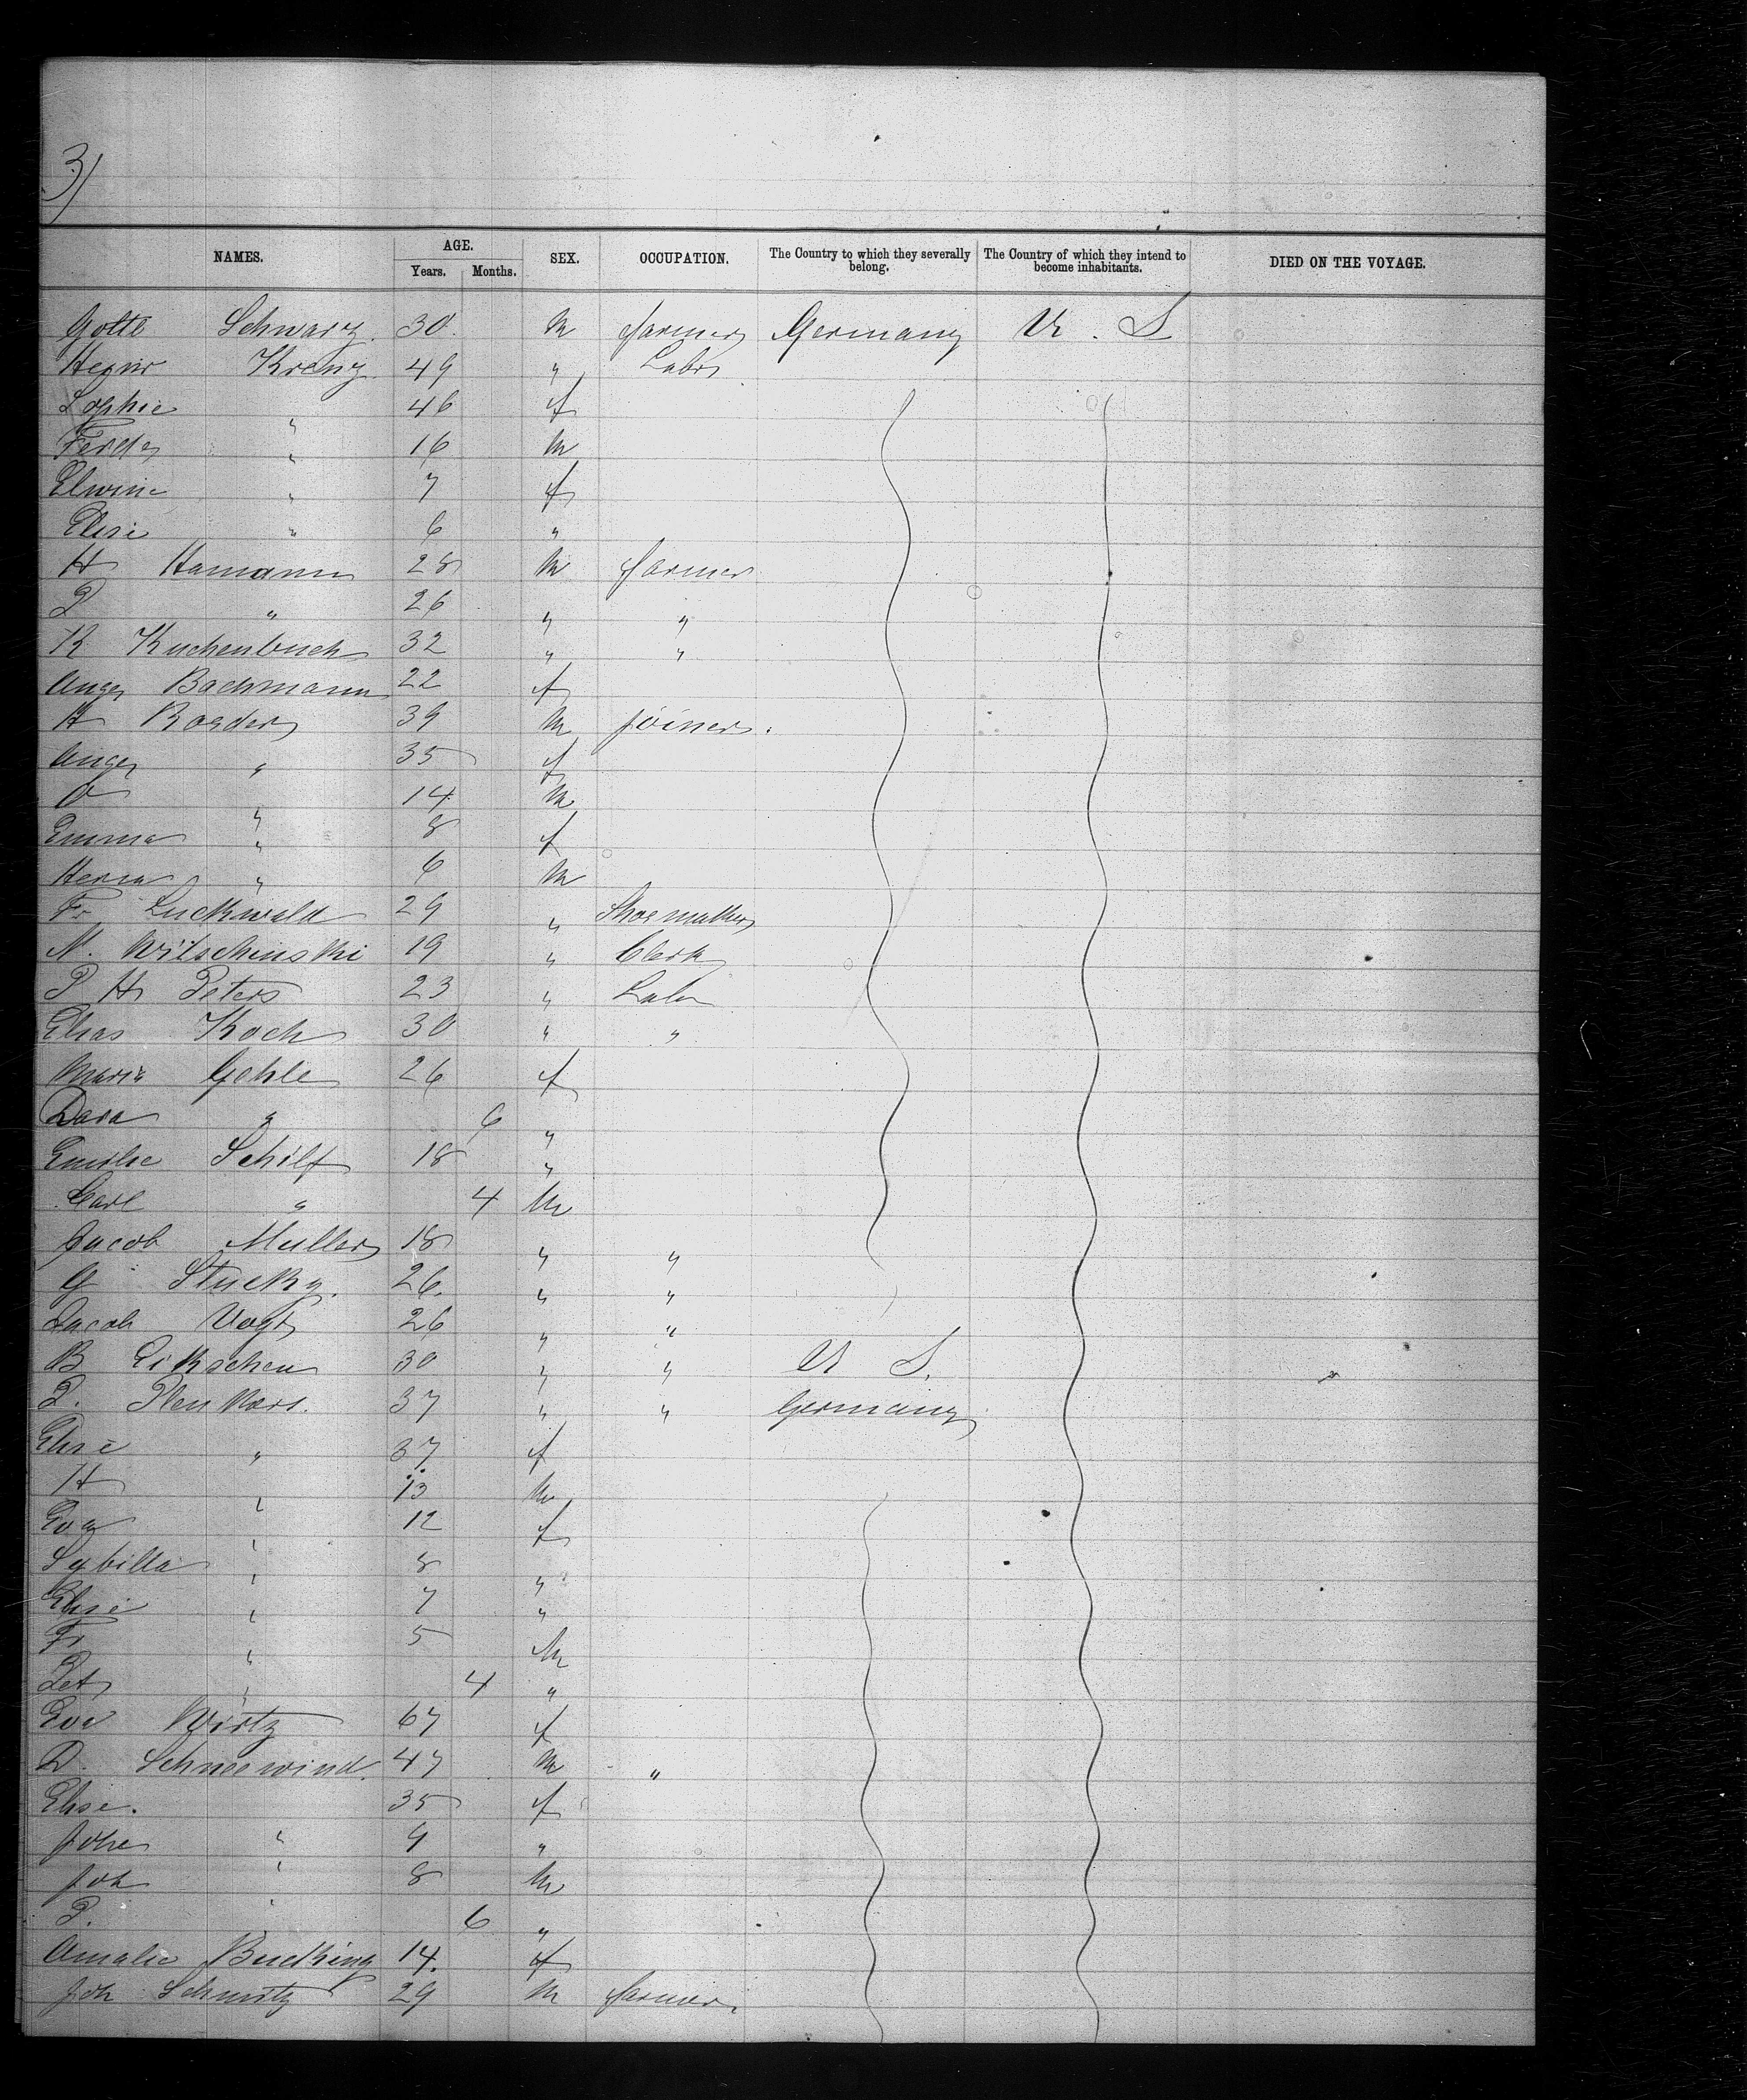 3)
NAMES. AGE. SEX. OCCUPATION. The Country to which they severally belong. The Country of which they intend to become inhabitants. DIED ON THE VOYAGE.
Years. Months.
Gottl Schwarz. 30 m farmer Germany U. S
Heinr Krenz 49 " Labr
Sophie " 46 f
Ferd " 16 m
Elwine " 7 f
Elise " 6 "
H Hamann 28 m farmer
P " 26 " "
R Kuchenbuch 32 " "
Auge Bachmann 22 f
H Roeder 39 m joiner.
Auge " 35 f
O " 14 m
Emma " 8 f
Herm " 6 m
Fr Luckwald 29 " Shoemaker
N. Witschinski 19 " Clerk
P H Peters 23 " Labr
Elias Koch 30 " "
Marie Gehle 26 f
Dora " 6 "
Emilie Schilf 18 "
Carl " 4 m
Jacob Muller 18 " "
G Stucky. 26. " "
Jacob Vogt 26 " "
B Eikschen 30 " " U S.
P. Plenkers. 37 " " Germany
Elise " 37 f
H " 13 m
Eva " 12 f
Sybilla " 8 "
Elise " 7 "
Fr " 5 m
Pet " 4 "
Eva Wirtz 67 f
D. Schneewind. 47 m "
Elise. 35 f
Johe " 9 "
Joh " 8 m
P. " 6 "
Amalie Bucking 14. f
Joh Schmitz 29 m farmer.